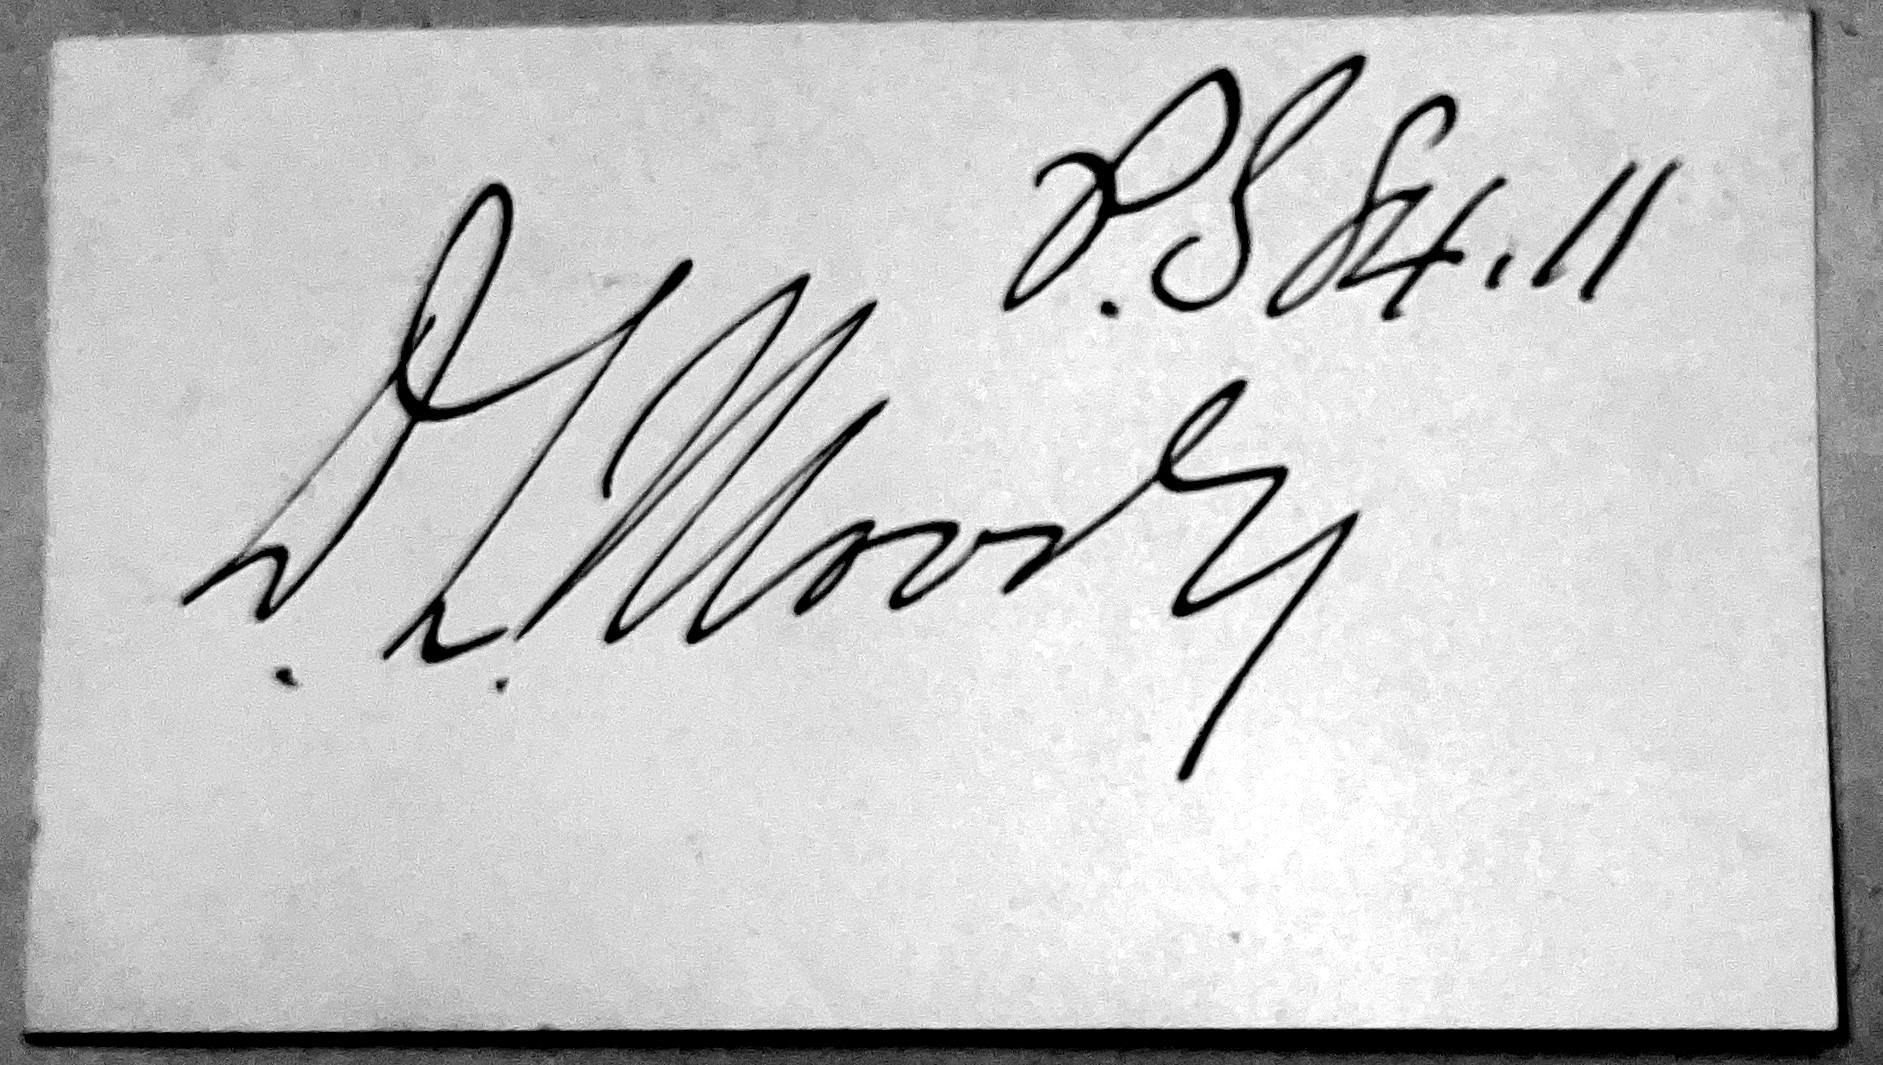 P.S 84.11
D. L. Moody